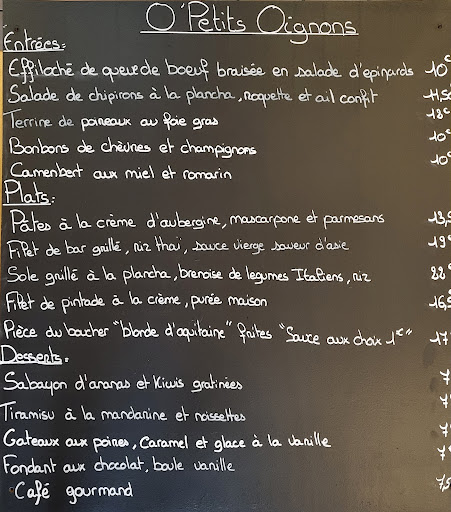 O'Petits Oignons
Entrées:
Effiloché de queue de boeuf braisée en salade d'épinards 10€
Salade de chipirons à la plancha, roquette et ail confit 11,50
Terrine de poireaux au foie gras 12€
Bonbons de chèvres et champignons 10€
Camenbert aux miel et romarin 10€
Plats:
Pâtes à la crème d'aubergine, mascarpone et parmesans 13,5
Filet de bar grillé, riz thaï, sauce vierge saveur d'asie 19€
Sole grillé à la plancha, brenoise de legumes Italiens, riz 22€
Filet de pintade à la crème, purée maison 16,5
Pièce du boucher "blonde d'aquitaine" frites "Sauce aux choix 1€" 17
Desserts:
Sabayon d'ananas et Kiwis gratinées 7
Tiramisu à la mandarine et noissettes 7
Gateaux aux poires, Caramel et glace à la vanille 7
Fondant aux chocolat, boule vanille 7
Café gourmand 7,5